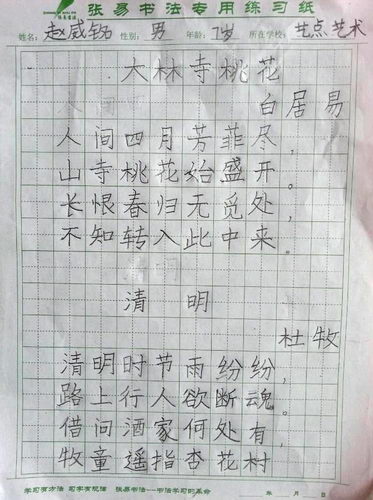 张易书法专用练习纸
姓名: 赵威 性别: 男 年龄: 7岁 所在学校: 艺点艺术
大林寺桃花
白居易
人间四月芳菲尽，
山寺桃花始盛开。
长恨春归无觅处，
不知转入此中来。
清 明
杜牧
清明时节雨纷纷，
路上行人欲断魂。
借问酒家何处有，
牧童遥指杏花村
学习有方法 习字有规法 张易书法──书法学习的革命 年 月 日